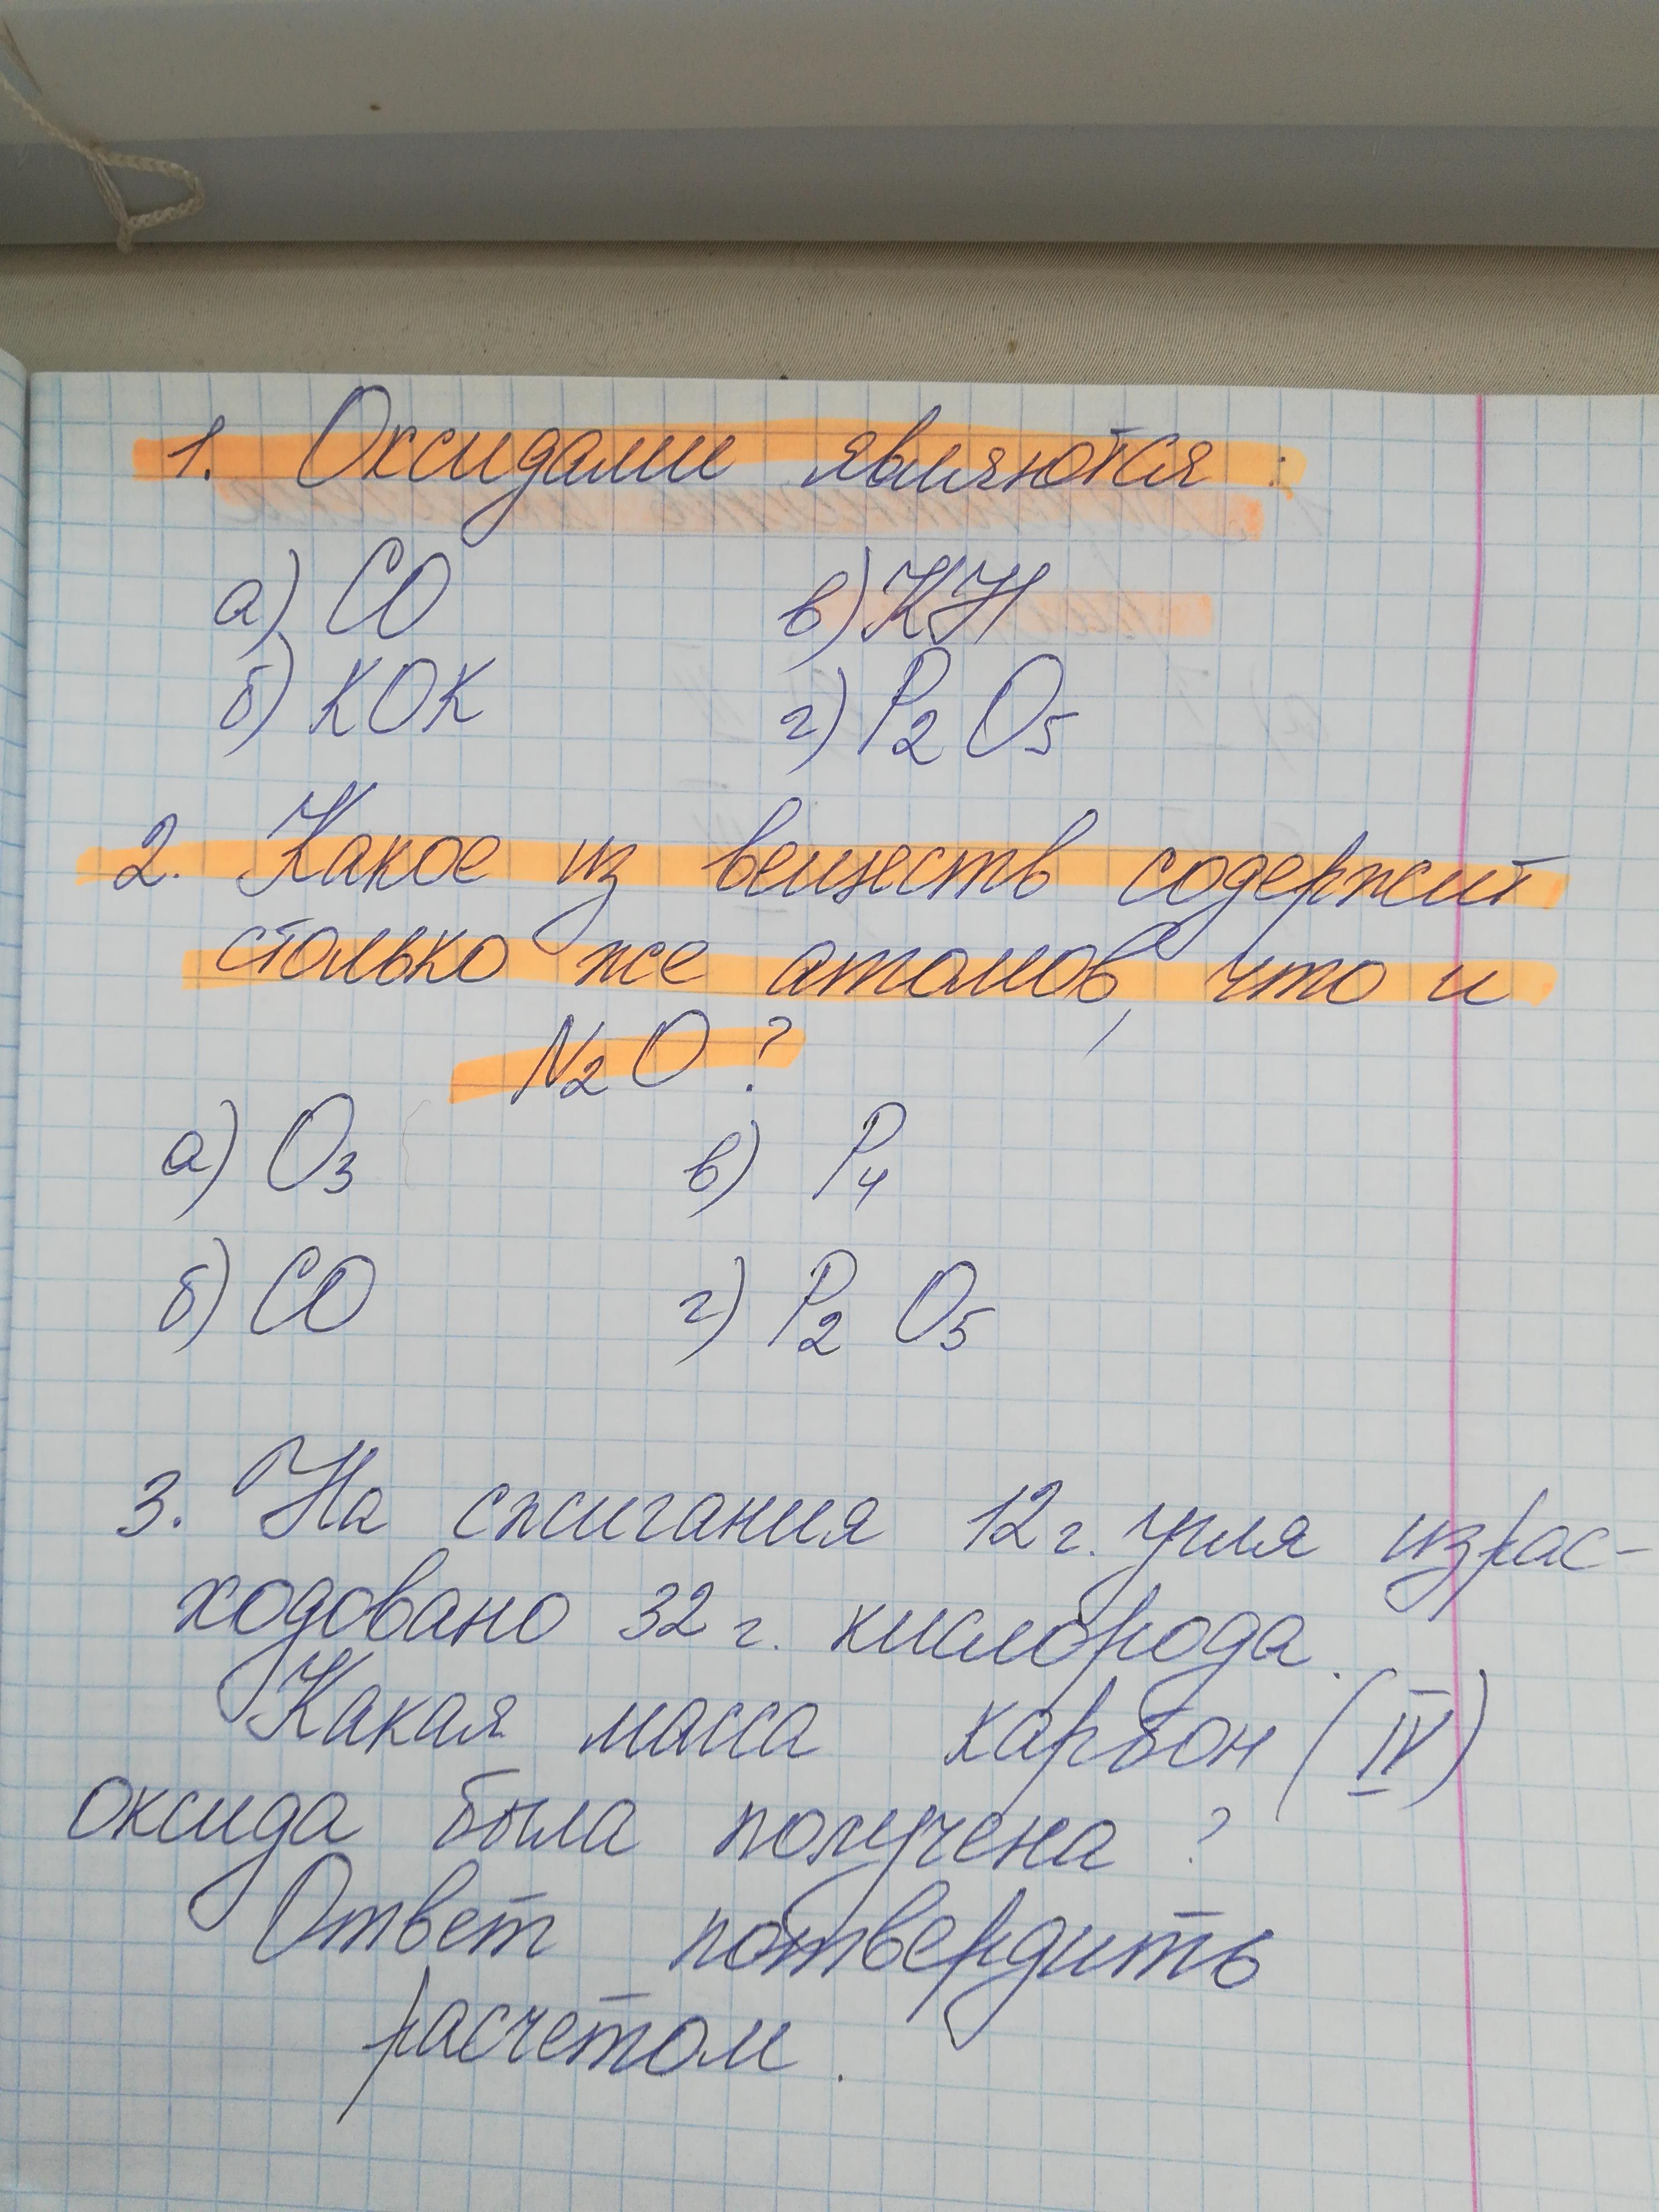 1. Оксидами являются:
а) CO в) KH
б) KOK г) P2O5
2. Какое из веществ содержит
столько же атомов, что и
N2O?
а) O3 в) P4
б) CO г) P2O5
3. На сжигания 12 г. угля израс-
ходовано 32 г. кислорода.
Какая масса карбон (IV)
оксида была получена?
Ответ потвердить
расчетом.